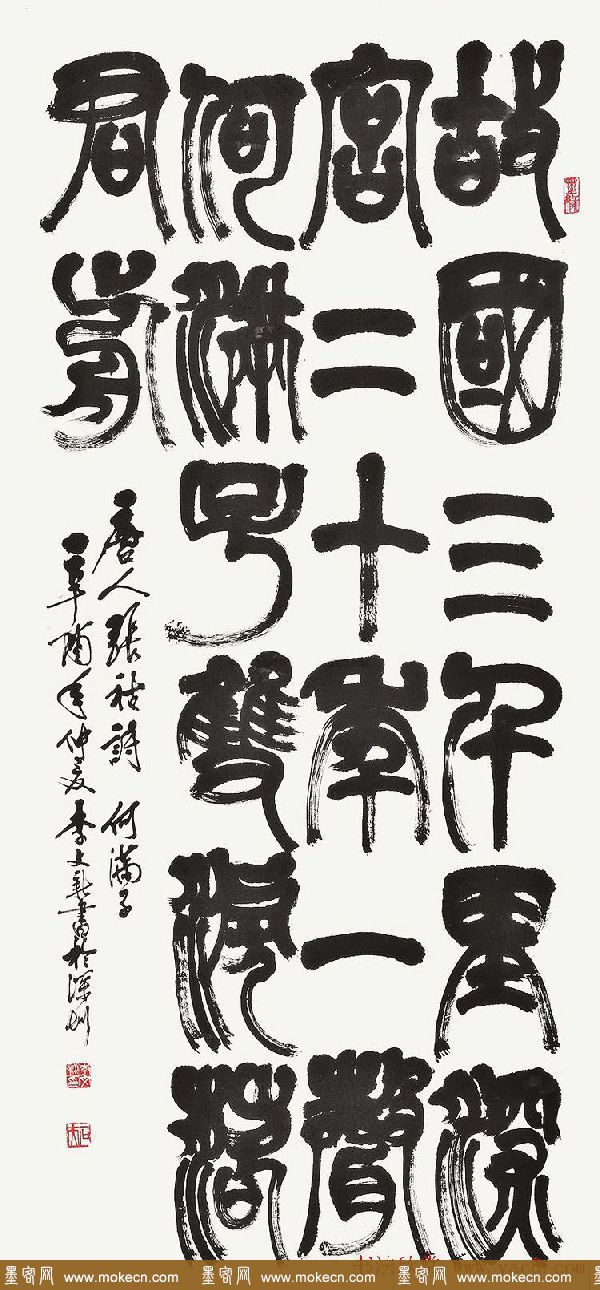 故國三千里深
宮二十年一聲
何滿子雙淚落
君前
唐人張祜詩 何滿子
辛酉年仲夏李文書於深圳
墨客网 www.mokecn.com 墨客网 www.mokecn.com 墨客网 www.mokecn.com